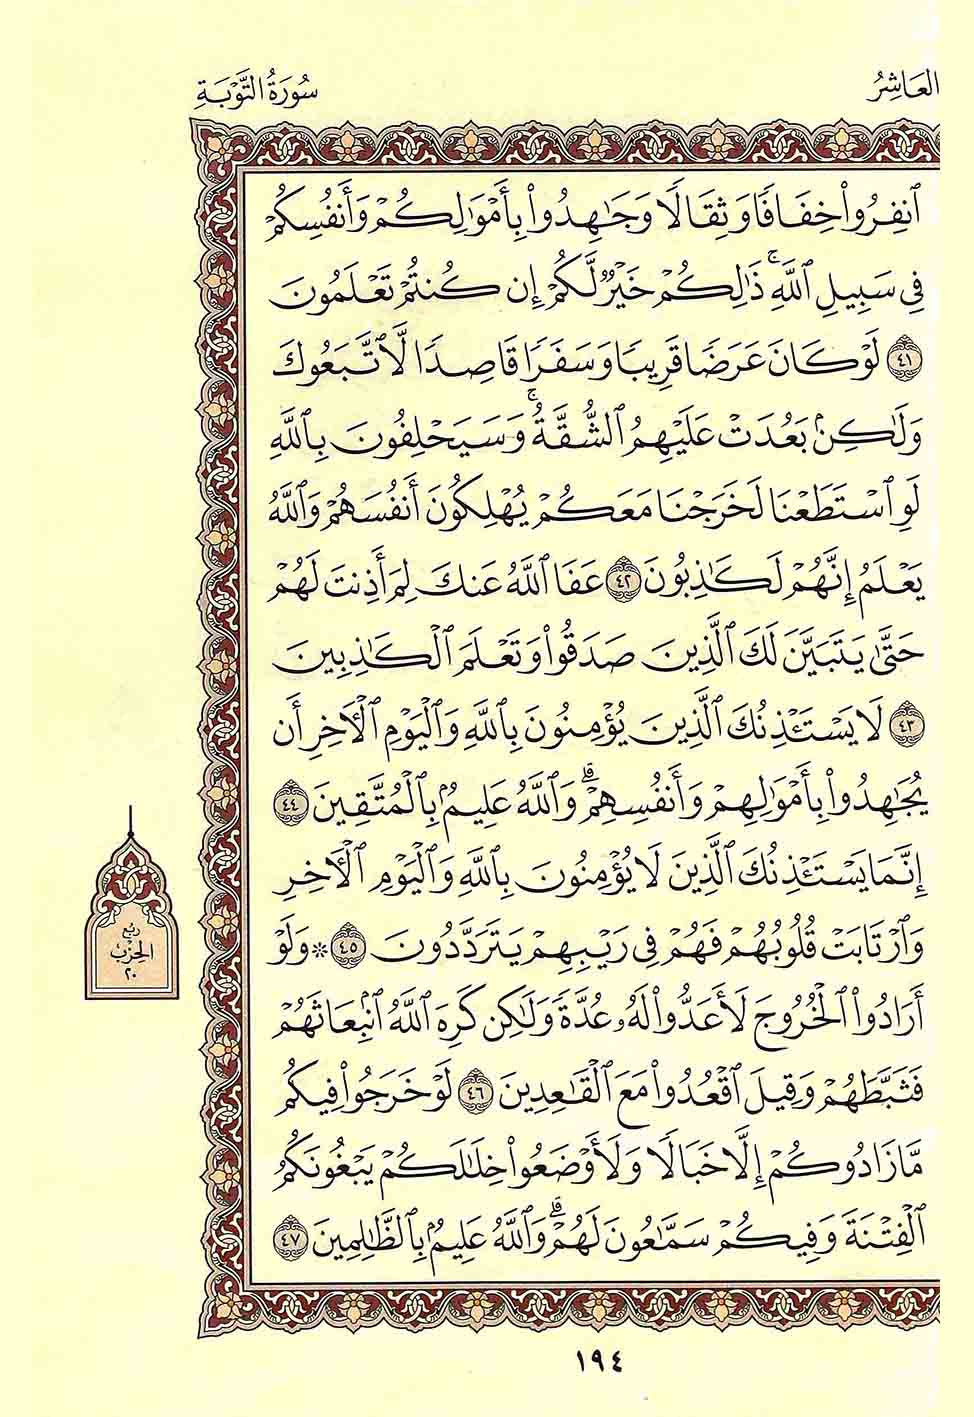 العاشر
سُورَةُ التَّوْبَةِ
ٱنفِرُوا۟ خِفَافًا وَثِقَالًا وَجَٰهِدُوا۟ بِأَمْوَٰلِكُمْ وَأَنفُسِكُمْ
فِى سَبِيلِ ٱللَّهِ ۚ ذَٰلِكُمْ خَيْرٌ لَّكُمْ إِن كُنتُمْ تَعْلَمُونَ
٤١ لَوْ كَانَ عَرَضًا قَرِيبًا وَسَفَرًا قَاصِدًا لَّٱتَّبَعُوكَ
وَلَٰكِنۢ بَعُدَتْ عَلَيْهِمُ ٱلشُّقَّةُ ۚ وَسَيَحْلِفُونَ بِٱللَّهِ
لَوِ ٱسْتَطَعْنَا لَخَرَجْنَا مَعَكُمْ يُهْلِكُونَ أَنفُسَهُمْ وَٱللَّهُ
يَعْلَمُ إِنَّهُمْ لَكَٰذِبُونَ ٤٢ عَفَا ٱللَّهُ عَنكَ لِمَ أَذِنتَ لَهُمْ
حَتَّىٰ يَتَبَيَّنَ لَكَ ٱلَّذِينَ صَدَقُوا۟ وَتَعْلَمَ ٱلْكَٰذِبِينَ
٤٣ لَا يَسْتَـْٔذِنُكَ ٱلَّذِينَ يُؤْمِنُونَ بِٱللَّهِ وَٱلْيَوْمِ ٱلْـَٔاخِرِ أَن
يُجَٰهِدُوا۟ بِأَمْوَٰلِهِمْ وَأَنفُسِهِمْ ۗ وَٱللَّهُ عَلِيمٌۢ بِٱلْمُتَّقِينَ ٤٤
إِنَّمَا يَسْتَـْٔذِنُكَ ٱلَّذِينَ لَا يُؤْمِنُونَ بِٱللَّهِ وَٱلْيَوْمِ ٱلْـَٔاخِرِ
وَٱرْتَابَتْ قُلُوبُهُمْ فَهُمْ فِى رَيْبِهِمْ يَتَرَدَّدُونَ ٤٥ * وَلَوْ
أَرَادُوا۟ ٱلْخُرُوجَ لَأَعَدُّوا۟ لَهُۥ عُدَّةً وَلَٰكِن كَرِهَ ٱللَّهُ ٱنۢبِعَاثَهُمْ
فَثَبَّطَهُمْ وَقِيلَ ٱقْعُدُوا۟ مَعَ ٱلْقَٰعِدِينَ ٤٦ لَوْ خَرَجُوا۟ فِيكُم
مَّا زَادُوكُمْ إِلَّا خَبَالًا وَلَأَوْضَعُوا۟ خِلَٰلَكُمْ يَبْغُونَكُمُ
ٱلْفِتْنَةَ وَفِيكُمْ سَمَّٰعُونَ لَهُمْ ۗ وَٱللَّهُ عَلِيمٌۢ بِٱلظَّٰلِمِينَ ٤٧
ربع
الحزب
٢٠
١٩٤